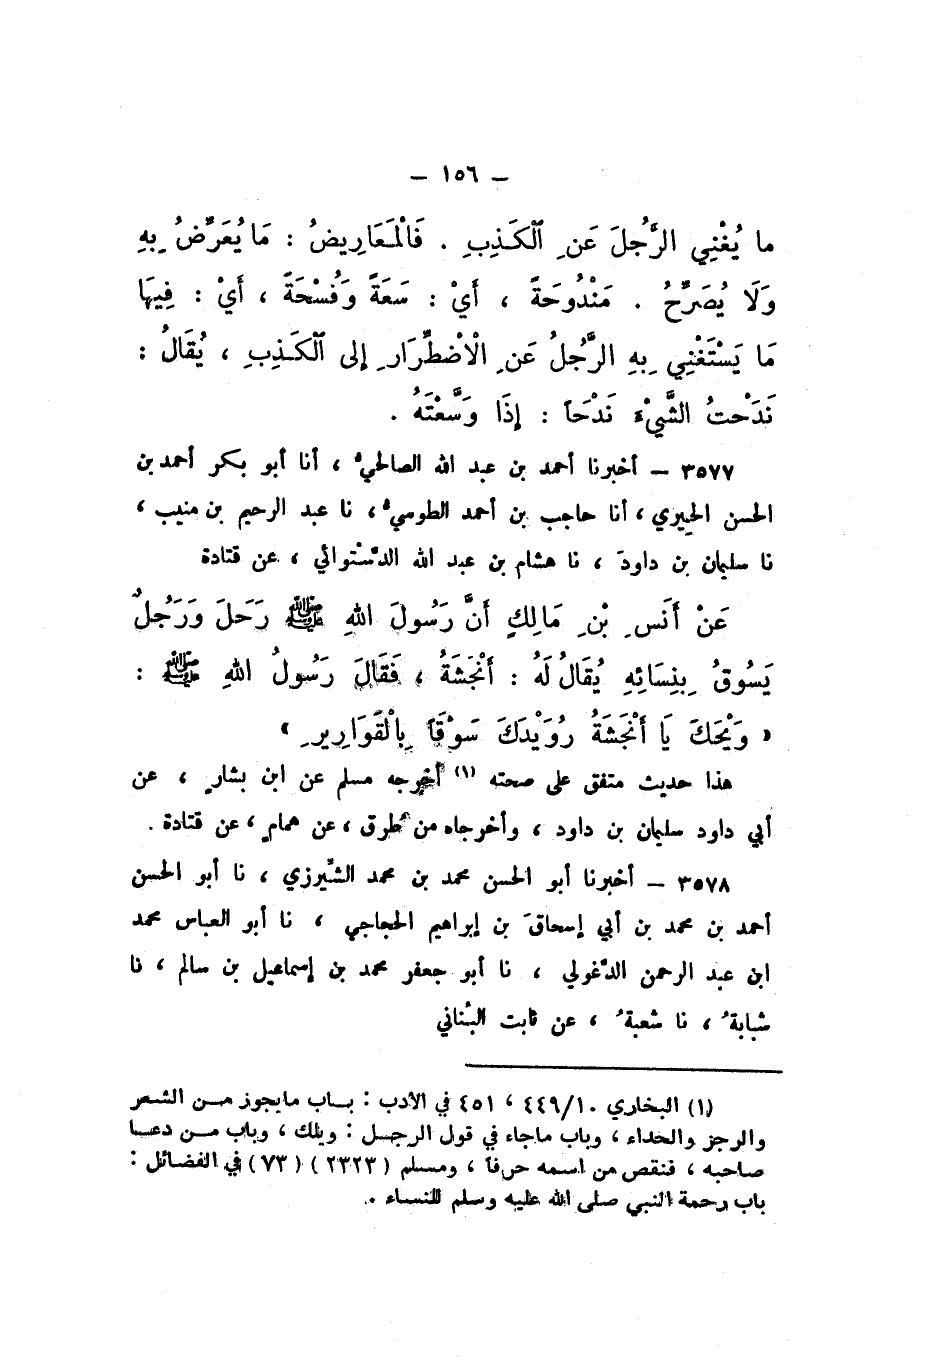 – ١٥٦ –
ما يُغْنِي الرَّجُلَ عَنِ ٱلْكَذِبِ . فَالْمَعَارِيضُ : مَا يُعَرَّضُ بِهِ
وَلَا يُصَرَّحُ . مَنْدُوحَةً ، أَيْ : سَعَةً وَفُسْحَةً ، أَيْ : فِيهَا
مَا يَسْتَغْنِي بِهِ الرَّجُلُ عَنِ الْاضْطِّرَارِ إِلى ٱلْكَذِبِ ، يُقَالُ :
نَدَحْتُ الشَّيْءَ نَدْحَاً : إِذَا وَسَّعْتَهُ .
٣٥٧٧ – أخبرنا أحمد بن عبد الله الصالحيُّ ، أنا أبو بكر أحمد بن
الحسن الحِيري ، أنا حاجب بن أحمد الطوسيُّ ، نا عبد الرحيم بن منيب ،
نا سليمان بن داودَ ، نا هشام بن عبد الله الدَّسْتوائي ، عن قتادة
عَنْ أَنَسِ بْنِ مَالِكٍ أَنَّ رَسُولَ اللهِ ﷺ رَحَلَ وَرَجُلٌ
يَسُوقُ بِنِسَائِهِ يُقَالُ لَهُ : أَنْجَشَةُ ، فَقَالَ رَسُولُ اللهِ ﷺ :
« وَيْحَكَ يَا أَنْجَشَةُ رُوَيْدَكَ سَوْقَاً بِالْقَوَارِيرِ »
هذا حديث متفق على صحته (١) أخرجه مسلم عن ابن بشارٍ ، عن
أبي داود سليمان بن داود ، وأخرجاه من طرق ، عن همامٍ ، عن قتادة .
٣٥٧٨ – أخبرنا أبو الحسن محمد بن محمد الشِّيرزي ، نا أبو الحسن
أحمد بن محمد بن أبي إسحاقَ بن إبراهيم الحجاجي ، نا أبو العباس محمد
ابن عبد الرحمن الدَّغولي ، نا أبو جعفر محمد بن إسماعيل بن سالم ، نا
شبابةُ ، نا شعبةُ ، عن ثابت البُناني
(١) البخاري ٤٤٩/١٠ ، ٤٥١ في الأدب : بـاب ما يجوز مـن الشـعر
والرجز والحداء ، وباب ماجاء في قول الرجـل : ويلك ، وباب مـن دعـا
صاحبه ، فنقص من اسمه حرفا ، ومسلم ( ٢٣٢٣ ) ( ٧٣ ) في الفضائل :
باب رحمة النبي صلى الله عليه وسلم للنساء .